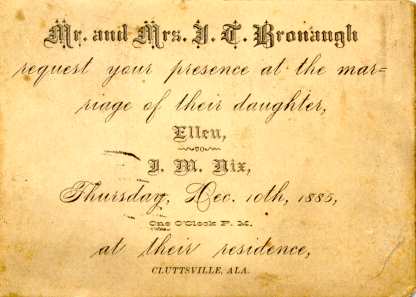 Mr. and Mrs. J. T. Bronaugh
request your presence at the mar=
riage of their daughter,
Ellen,
TO
J. M. Nix,
Thursday, Dec. 10th, 1885,
One O'Clock P. M.
at their residence,
CLUTTSVILLE, ALA.